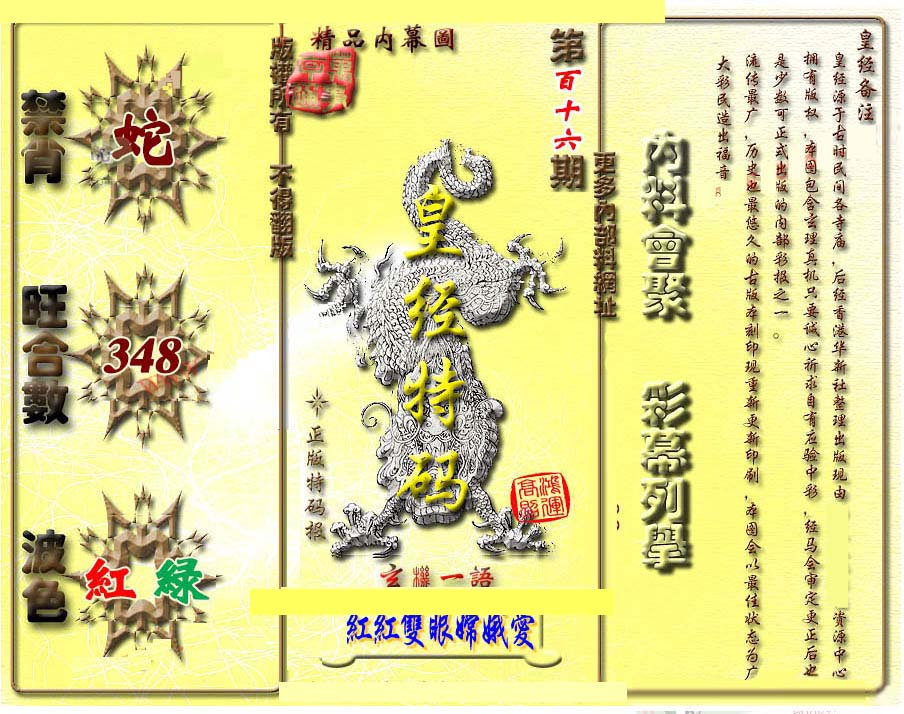 精品內幕圖
版權所有 不得翻版
第百十六期
更多內部料網址
禁肖
蛇
旺合數
348
波色
紅 綠
皇经特码
正版特码报
鴻運高照
玄機一語
紅紅雙眼嫦娥愛
內料會聚 彩幕列舉
皇经备注
皇经源于古时民间各寺庙，后经香港华新社整理出版现由 资源中心
拥有版权，本图包含玄理真机只要诚心祈求自有应验中彩，经马会审定更正后也
是少数可正式出版的内部彩报之一。
流传最广，历史也最悠久的古版本刻印现重新更新印刷，本图会以最佳状态为广
大彩民造出福音